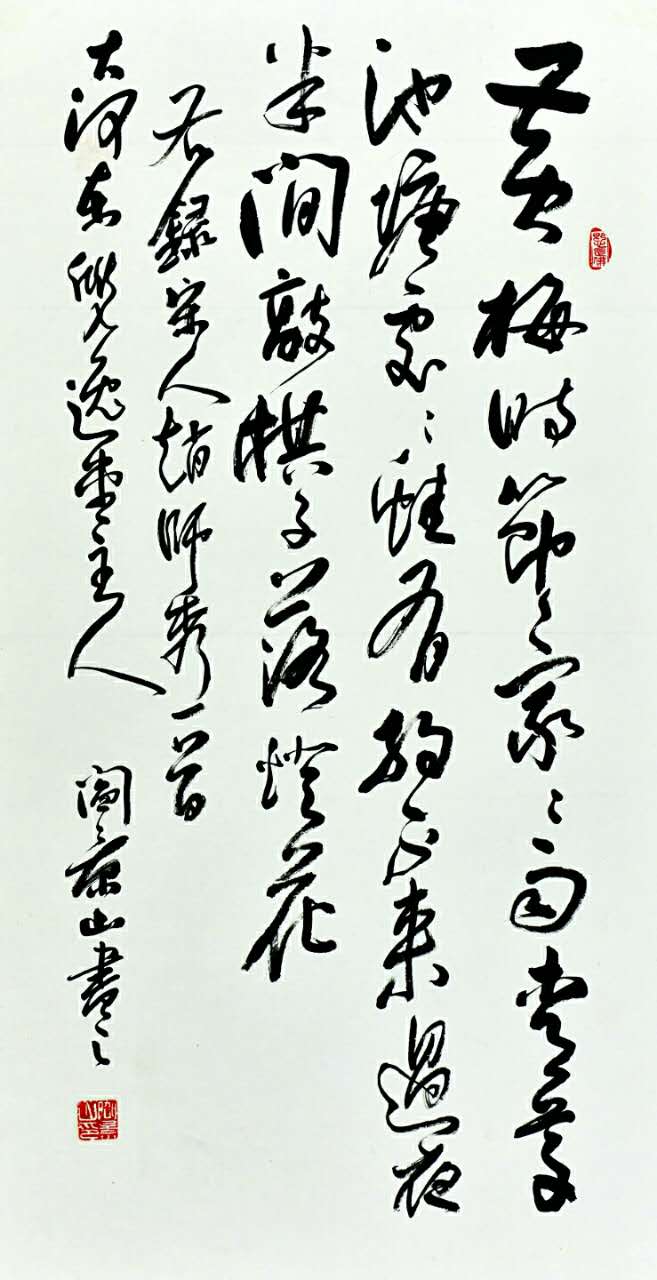 黄梅時節家家雨青草
池塘處處蛙有約不來過夜
半間敲棋子落燈花
右録宋人趙師秀一首
大河東逸堂主人 閻景山書之